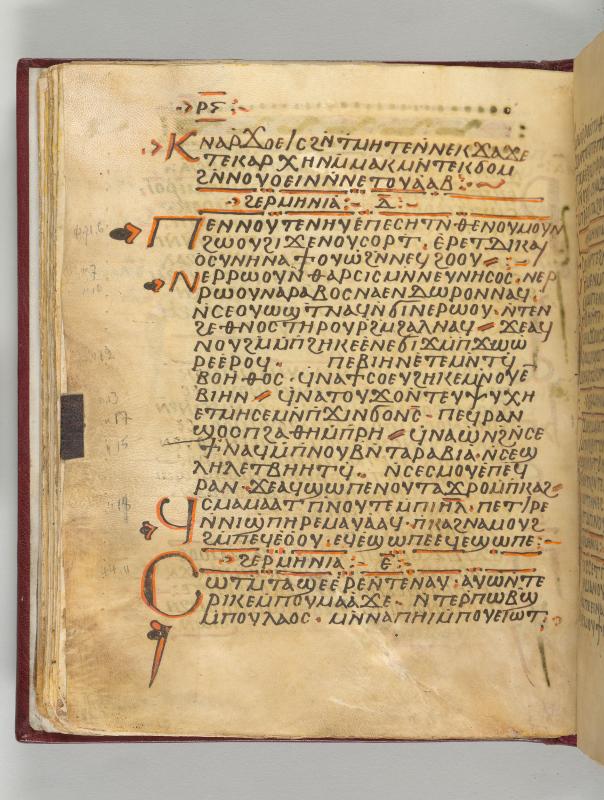 ⲣⲋ
ⲕⲛⲁⲣϫⲟⲉⲓⲥ ϩⲛⲧⲙⲏⲧⲉⲛⲛⲉⲕϫⲁϫⲉ
ⲧⲉⲕⲁⲣⲭⲏⲛⲙⲙⲁⲕ ⲙⲛⲧⲉⲕϭⲟⲙ
ϩⲛⲛⲟⲩⲟⲉⲓⲛⲛⲛⲉⲧⲟⲩⲁⲁⲃ
ϩⲉⲣⲙⲏⲛⲓⲁ ⲇ̅
ⲡⲉⲛⲛⲟⲩⲧⲉⲛⲏⲩⲉⲡⲉⲥⲏⲧⲛⲑⲉⲛⲟⲩⲙⲟⲩⲛ
ϩⲱⲟⲩϩⲓϫⲉⲛⲟⲩⲥⲟⲣⲧ · ⲉⲣⲉⲧⲇⲓⲕⲁⲓ
ⲟⲥⲩⲛⲏⲛⲁϯⲟⲩⲱϩⲛⲛⲉϥϩⲟⲟⲩ
ⲛⲉⲣⲣⲱⲟⲩⲛⲑⲁⲣⲥⲓⲥⲙⲛⲛⲉⲩⲛⲏⲥⲟⲥ · ⲛⲉⲣ
ⲣⲱⲟⲩⲛⲁⲣⲁⲃⲟⲥⲛⲁⲉⲛⲇⲱⲣⲟⲛⲛⲁϥ ·
ⲛⲥⲉⲟⲩⲱϣⲧⲛⲁϥⲛϭⲓⲛⲉⲣⲱⲟⲩ · ⲛⲧⲉⲛ
ϩⲉⲑⲛⲟⲥⲧⲏⲣⲟⲩⲣϩⲙϩⲁⲗⲛⲁϥ ϫⲉⲁϥ
ⲛⲟⲩϩⲙⲙⲡϩⲏⲕⲉⲉⲛⲉϭⲓϫⲙⲡϫⲱⲱ
ⲣⲉⲉⲣⲟϥ · ⲡⲉⲃⲓⲏⲛⲉⲧⲉⲙⲛⲧϥ
ⲃⲟⲏⲑⲟⲥ · ϥⲛⲁϯⲥⲟⲉⲩϩⲏⲕⲉⲙⲛⲟⲩⲉ
ⲃⲓⲏⲛ ϥⲛⲁⲧⲟⲩϫⲟⲛⲧⲉⲩⲯⲩⲭⲏ
ⲉⲧⲙⲏⲥⲉⲙⲛⲡϫⲓⲛϭⲟⲛⲥ · ⲡⲉϥⲣⲁⲛ
ϣⲟⲟⲡϩⲁⲑⲏⲙⲡⲣⲏ ϥⲛⲁⲱⲛϩⲛⲥⲉ
ϯⲛⲁϥⲙⲡⲛⲟⲩⲃⲛⲧⲁⲣⲁⲃⲓⲁ · ⲛⲥⲉϣ
ⲗⲏⲗⲉⲧⲃⲏⲏⲧϥ · ⲛⲥⲉⲥⲙⲟⲩⲉⲡⲉϥ
ⲣⲁⲛ · ϫⲉⲁϥϣⲱⲡⲉⲛⲟⲩⲧⲁϫⲣⲟⲙⲡⲕⲁϩ
ϥⲥⲙⲁⲙⲁⲁⲧⲡⲛⲟⲩⲧⲉⲙⲡⲓⲏⲗ · ⲡⲉⲧⲓⲣⲉ
ⲛⲛⲓϣⲡⲏⲣⲉⲙⲁⲩⲁⲁϥ · ⲡⲕⲁϩⲛⲁⲙⲟⲩϩ
ϩⲙⲡⲉϥⲉⲟⲟⲩ · ⲉϥⲉϣⲱⲡⲉⲉϥⲉϣⲱⲡⲉ
ϩⲉⲣⲙⲏⲛⲓⲁ ⲉ̅
ⲥⲱⲧⲙⲧⲁϣⲉⲉⲣⲉⲛⲧⲉⲛⲁⲩ · ⲁⲩⲱⲛⲧⲉ
ⲣⲓⲕⲉⲙⲡⲟⲩⲙⲁⲁϫⲉ · ⲛⲧⲉⲣⲡⲱⲃϣ
ⲙⲡⲟⲩⲗⲁⲟⲥ · ⲙⲛⲛⲁⲡⲏⲓⲙⲡⲟⲩⲉⲓⲱⲧ